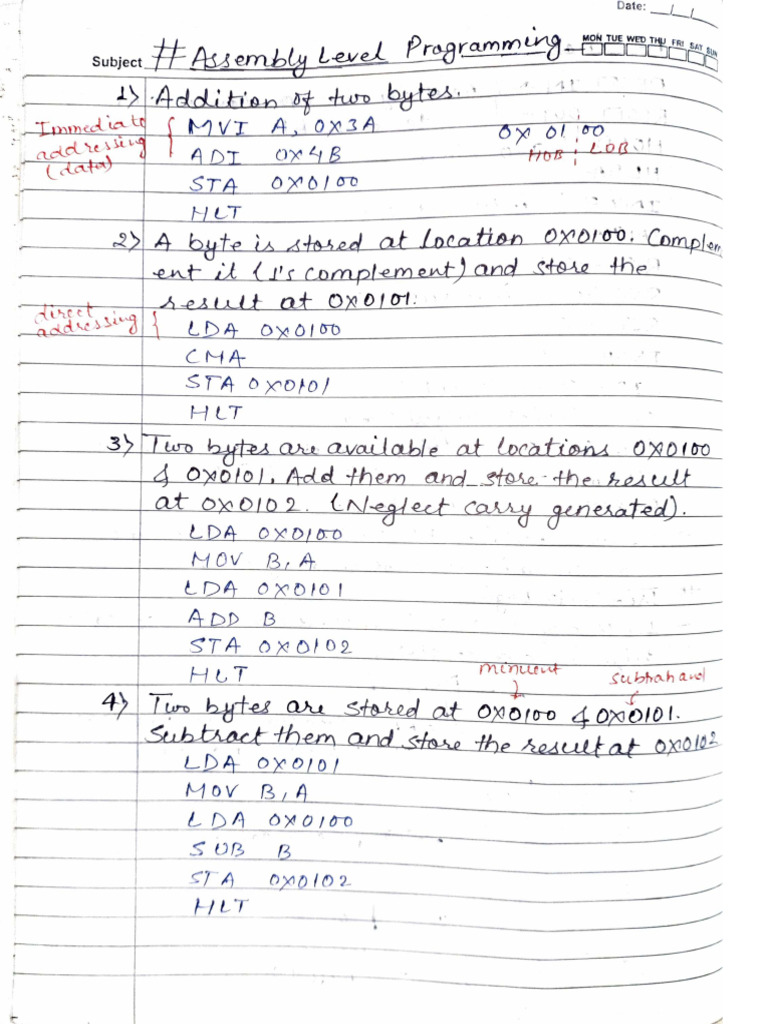 Date: __/__/__
Subject # Assembly Level Programming MON TUE WED THU FRI SAT SUN
1) Addition of two bytes.
Immediate addressing (data)
MVI A, 0X3A
0X 01 00
HOB LOB
ADI 0X4B
STA 0X0100
HLT
2) A byte is stored at location 0X0100. Complem
ent it (1's complement) and store the
result at 0X0101.
direct addressing
LDA 0X0100
CMA
STA 0X0101
HLT
3) Two bytes are available at locations 0X0100
& 0X0101. Add them and store the result
at 0X0102. (Neglect carry generated).
LDA 0X0100
MOV B, A
LDA 0X0101
ADD B
STA 0X0102
HLT
minuent subtrahand
4) Two bytes are stored at 0X0100 & 0X0101.
Subtract them and store the result at 0X0102
LDA 0X0101
MOV B, A
LDA 0X0100
SUB B
STA 0X0102
HLT